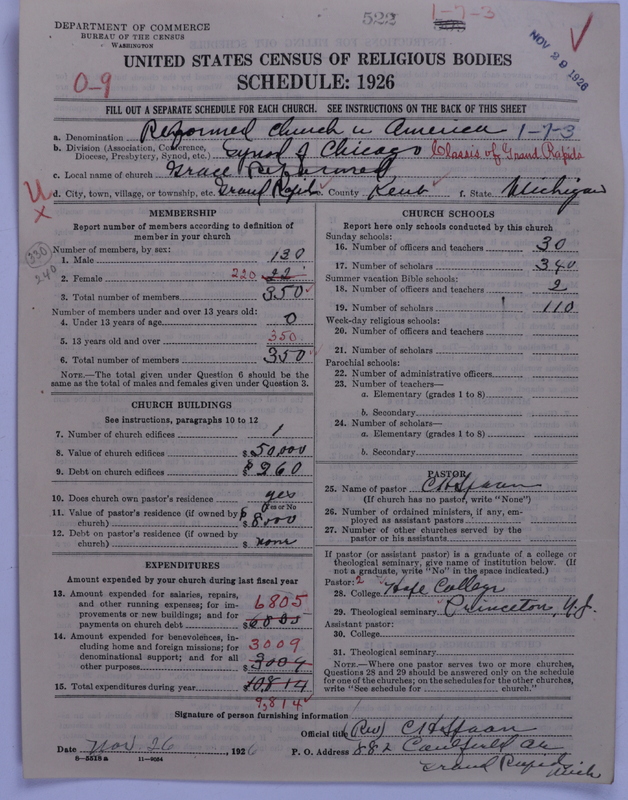 522
1-7-3
DEPARTMENT OF COMMERCE
BUREAU OF THE CENSUS
WASHINGTON
NOV 29 1926
UNITED STATES CENSUS OF RELIGIOUS BODIES
SCHEDULE: 1926
0-9
FILL OUT A SEPARATE SCHEDULE FOR EACH CHURCH. SEE INSTRUCTIONS ON THE BACK OF THIS SHEET
a. Denomination Reformed Church in America 1-7-3
b. Division (Association, Conference, Diocese, Presbytery, Synod, etc.) Synod of Chicago Classis of Grand Rapids
c. Local name of church Grace Reformed
d. City, town, village, or township, etc. Grand Rapids e. County Kent f. State Michigan
U
x
330
240
MEMBERSHIP
Report number of members according to definition of
member in your church
Number of members, by sex:
1. Male 130
2. Female 220 22
3. Total number of members 350
Number of members under and over 13 years old:
4. Under 13 years of age 0
5. 13 years old and over 350
6. Total number of members 350
NOTE.—The total given under Question 6 should be
the same as the total of males and females given under Question 3.
CHURCH BUILDINGS
See instructions, paragraphs 10 to 12
7. Number of church edifices 1
8. Value of church edifices $ 50,000
9. Debt on church edifices $ 260
10. Does church own pastor's residence yes
Yes or No
11. Value of pastor's residence (if owned by
church) $ 8000
12. Debt on pastor's residence (if owned by
church) $ none
EXPENDITURES
Amount expended by your church during last fiscal year
13. Amount expended for salaries, repairs,
and other running expenses; for im-
provements or new buildings; and for
payments on church debt $ 6805
14. Amount expended for benevolences, in-
cluding home and foreign missions; for
denominational support; and for all
other purposes 3009 3004
15. Total expenditures during year 10,814
9,814
CHURCH SCHOOLS
Report here only schools conducted by this church
Sunday schools:
16. Number of officers and teachers 30
17. Number of scholars 340
Summer vacation Bible schools:
18. Number of officers and teachers 2
19. Number of scholars 110
Week-day religious schools:
20. Number of officers and teachers
21. Number of scholars
Parochial schools:
22. Number of administrative officers
23. Number of teachers—
a. Elementary (grades 1 to 8)
b. Secondary
24. Number of scholars—
a. Elementary (grades 1 to 8)
b. Secondary
PASTOR
25. Name of pastor C H Spaan
(If church has no pastor, write "None")
26. Number of ordained ministers, if any, em-
ployed as assistant pastors
27. Number of other churches served by the
pastor or his assistants
If pastor (or assistant pastor) is a graduate of a college or
theological seminary, give name of institution below. (If
not a graduate, write "No" in the space indicated.)
Pastor: 2
28. College Hope College
29. Theological seminary Princeton, N.J.
Assistant pastor:
30. College
31. Theological seminary
NOTE.—Where one pastor serves two or more churches,
Questions 28 and 29 should be answered only on the schedule
for one of the churches; on the schedules for the other churches,
write "See schedule for church."
Signature of person furnishing information
Official title (Rev) C H Spaan
Date Nov. 26, 1926 P. O. Address 882 Caulfield Av
Grand Rapids Mich
8-5518a 11-9034